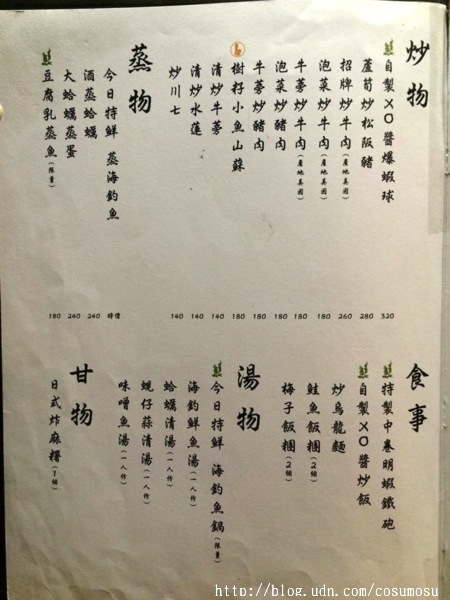 炒物
自製XO醬爆蝦球 320
蘆筍炒松阪豬 280
招牌炒牛肉(產地美國) 260
泡菜炒牛肉(產地美國) 180
牛蒡炒牛肉(產地美國) 180
泡菜炒豬肉 180
牛蒡炒豬肉 180
樹籽小魚山蘇 180
清炒牛蒡 140
清炒水蓮 140
炒川七 140
蒸物
今日特鮮 蒸海釣魚 時價
酒蒸蛤蠣 240
大蛤蠣蒸蛋 240
豆腐乳蒸魚(限量) 180
食事
特製中卷明蝦鐵砲
自製XO醬炒飯
炒烏龍麵
鮭魚飯糰(2個)
梅子飯糰(2個)
湯物
今日特鮮 海釣魚鍋(限量)
海釣鮮魚湯(一人份)
蛤蠣清湯(一人份)
蜆仔蒜清湯(一人份)
味噌魚湯(一人份)
甘物
日式炸麻糬(1個)
http://blog.udn.com/cosumosu